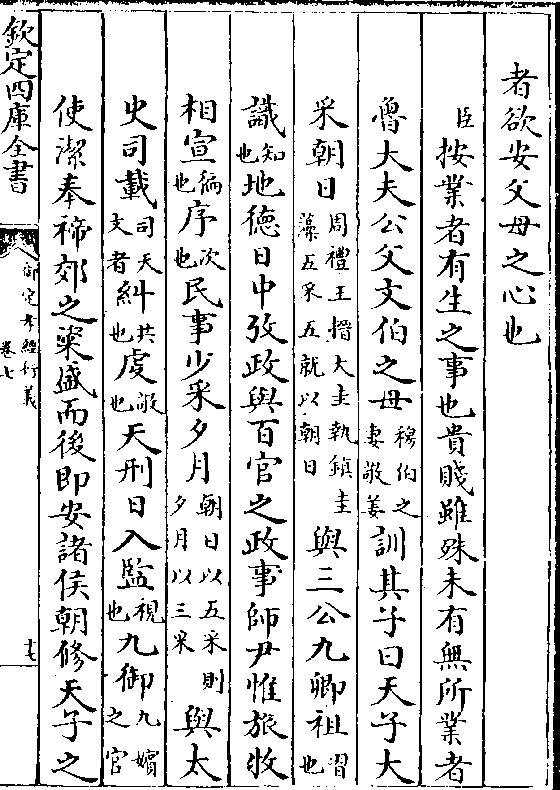 者欲安父母之心也
臣按業者有生之事也貴賤雖殊未有無所業者
魯大夫公父文伯之母穆伯之妻敬姜訓其子曰天子大
采朝日周禮王搢大圭執鎮圭藻五采五就以朝日與三公九卿祖習也
識知也地德日中攷政與百官之政事師尹惟旅牧
相宣徧也序次也民事少采夕月朝日以五采則夕月以三采與太
史司載司天文者糾共也虔敬也天刑日入監視也九御九嬪之官
使潔奉禘郊之粢盛而後即安諸侯朝修天子之
欽定四庫全書
御定孝經衍義
卷七
十七